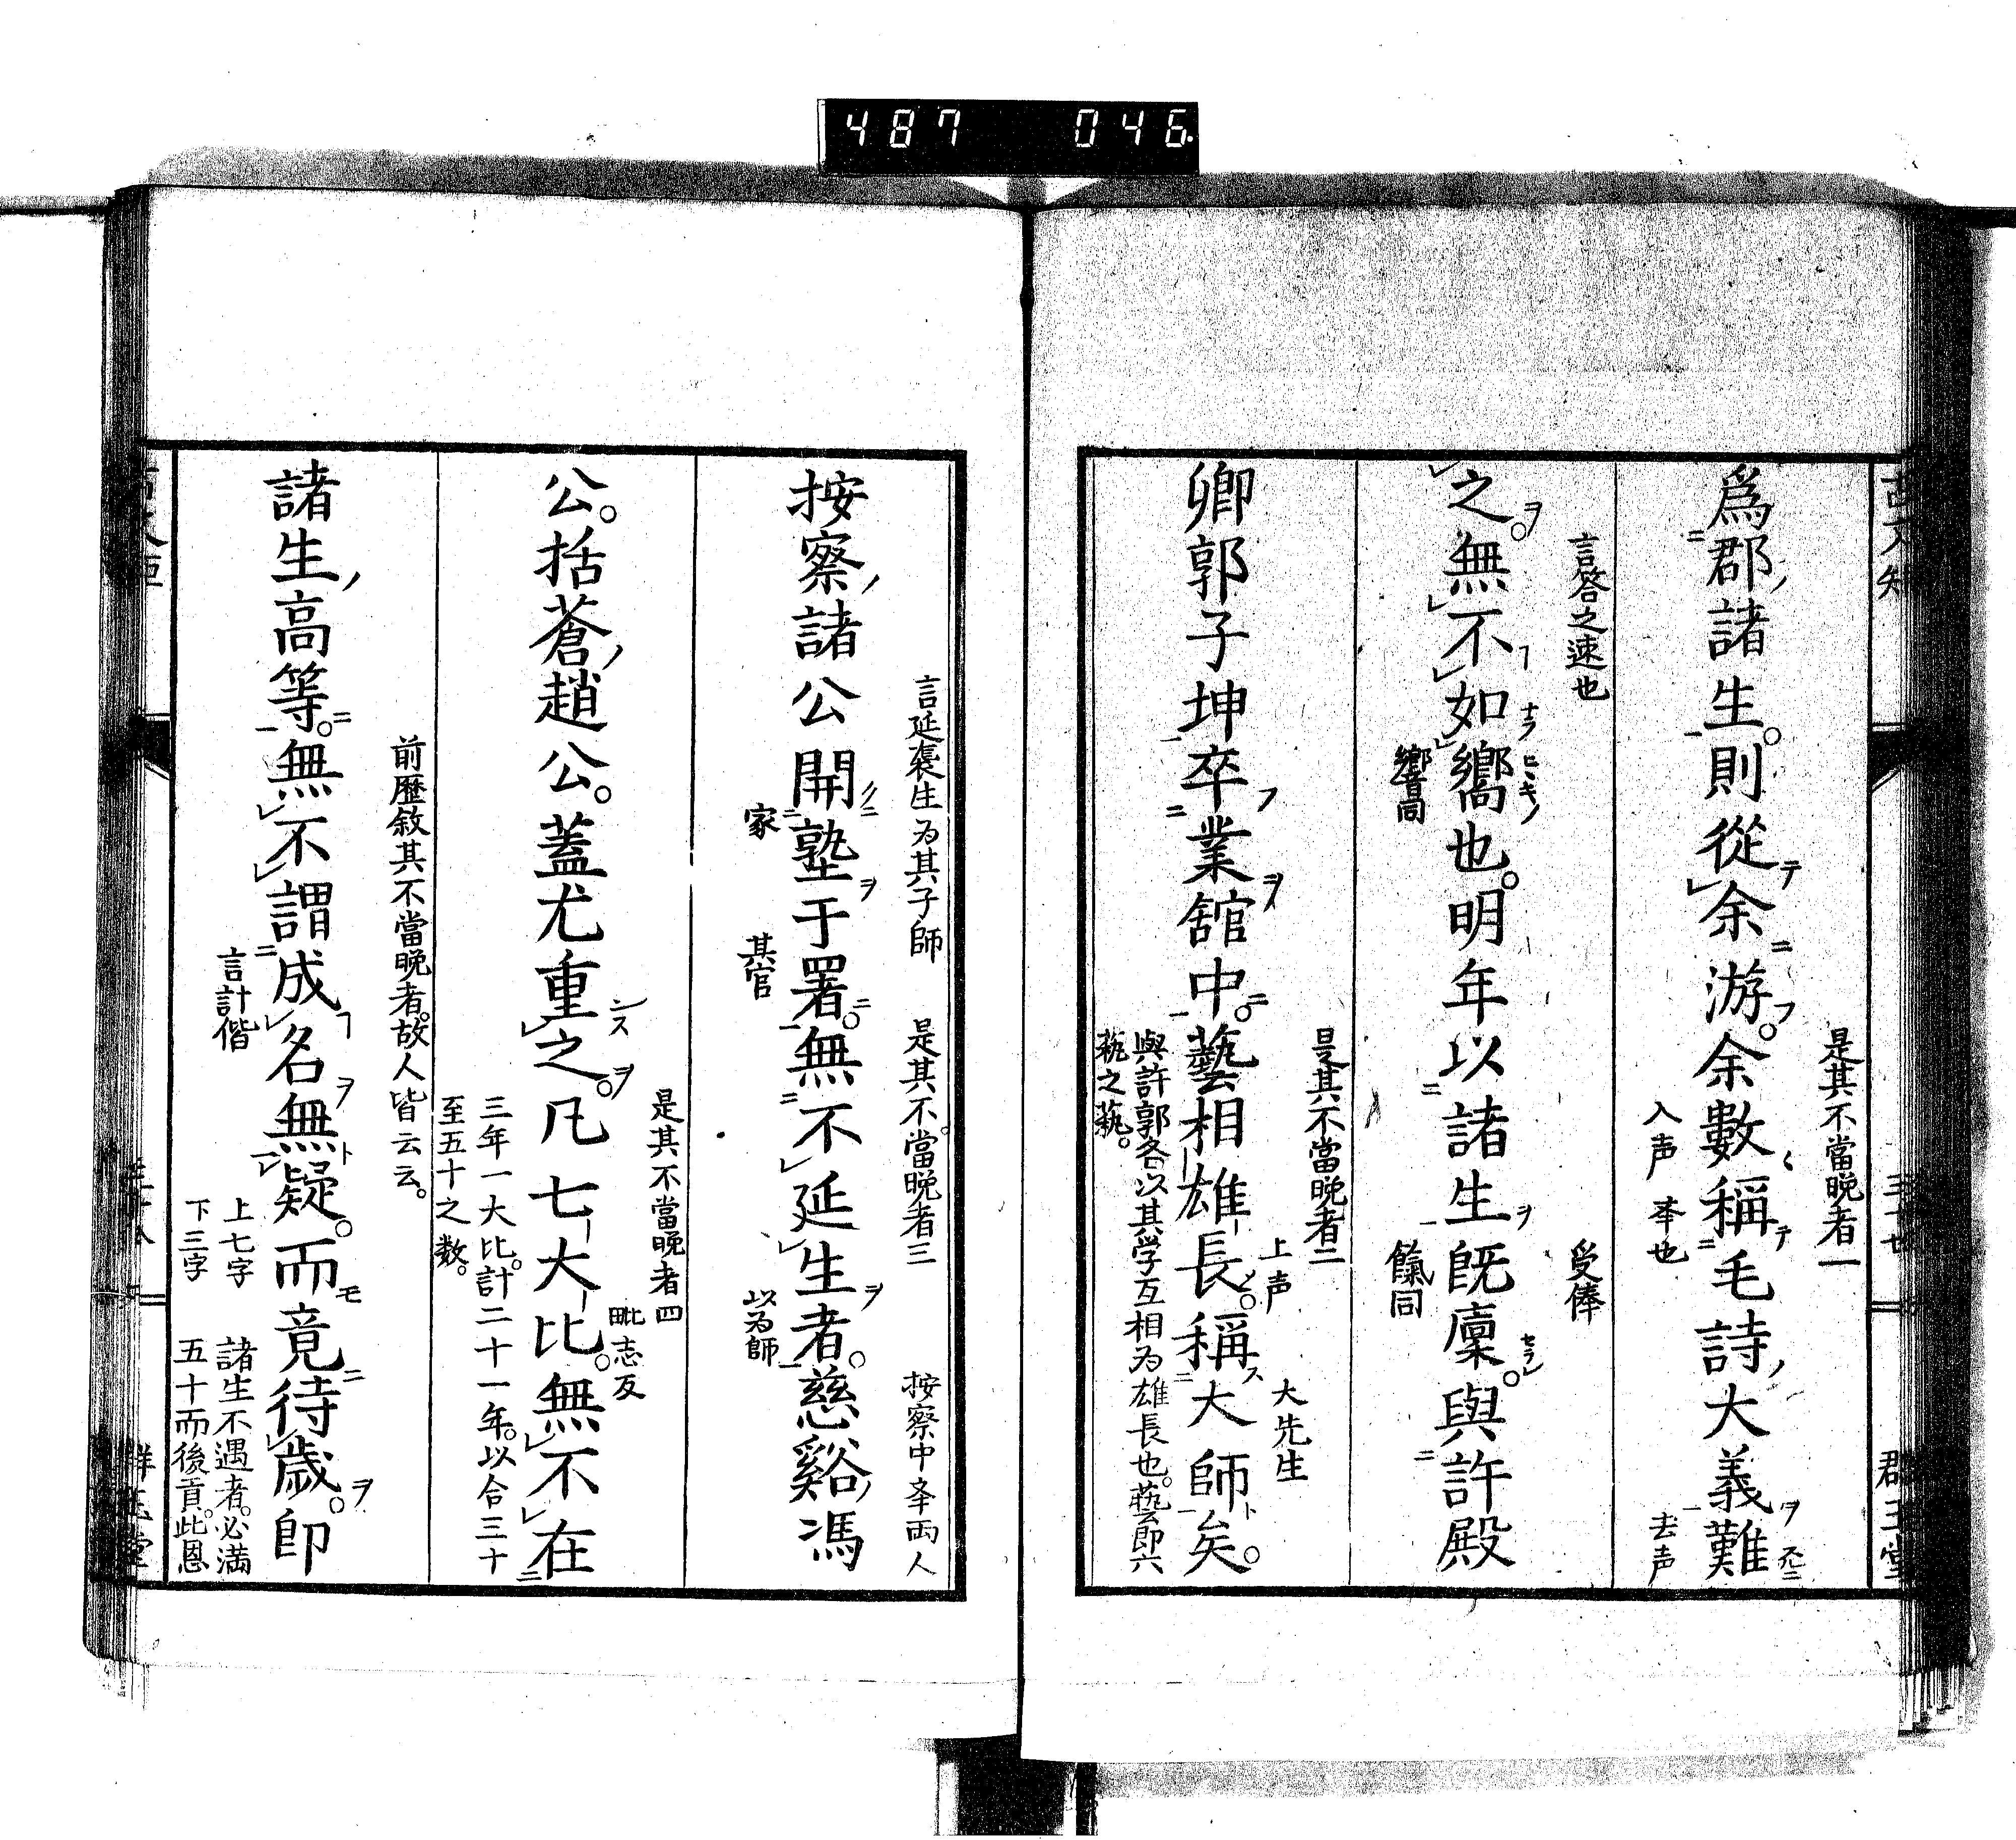 487 046
是其不當晚者一
爲郡諸生。則從余游。余數稱毛詩大義難
入声 㪯也 去声
言答之速也 受俸
之。無不如嚮也。明年以諸生既廩。與許殿
嚮音同 餼同
是其不當晚者二
上声 大先生
卿郭子坤卒業舘中。藝相雄長。稱大師矣。
與許郭各以其学互相为雄長也。藝即六
藝之藝。
言延褒生为其子師 是其不當晚者三 按察中㪯両人
按察諸公開塾于署。無不延生者。慈谿馮
家 其官 以为師
是其不當晚者四
毗志反
公。括蒼趙公。蓋尤重之。凡七大比。無不在
三年一大比。計二十一年。以合三十
至五十之数。
前歴敘其不當晚者。故人皆云云。
諸生高等。無不謂成名無疑。而竟待歳。即
言計偕
上七字
下三字
諸生不遇者。必满
五十而後貢。此恩